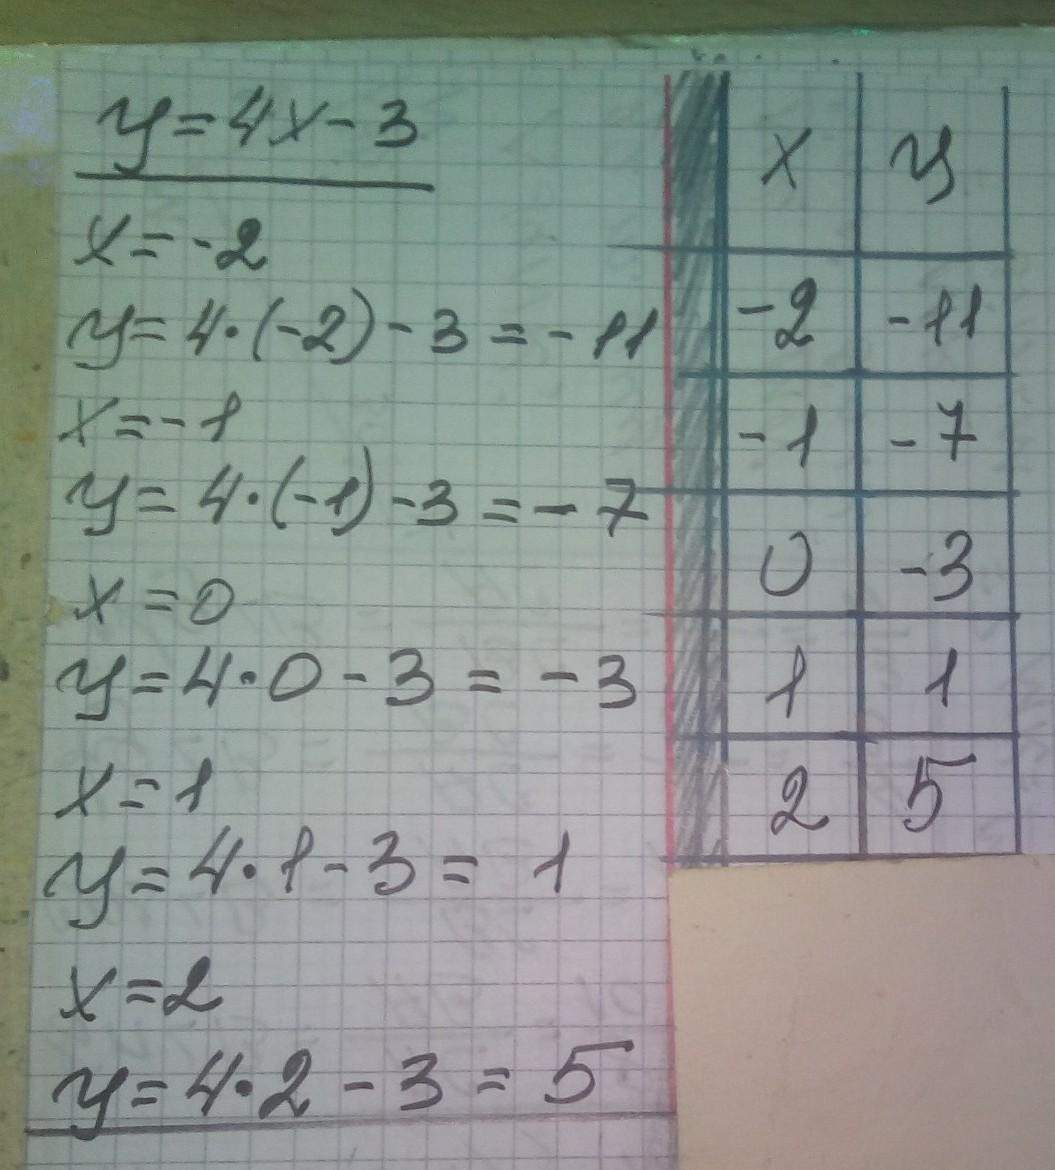 y=4x-3
x=-2
y=4·(-2)-3=-11
x=-1
y=4·(-1)-3=-7
x=0
y=4·0-3=-3
x=1
y=4·1-3=1
x=2
y=4·2-3=5
x y
-2 -11
-1 -7
0 -3
1 1
2 5